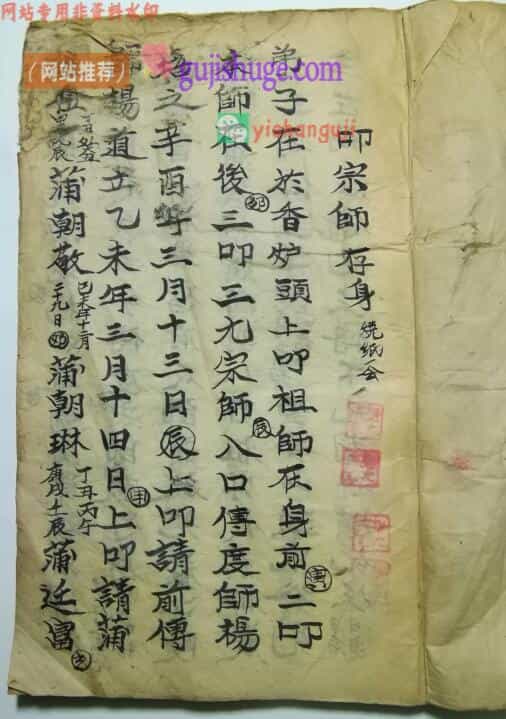 网站专用非资料水印
（网站推荐）
gujishuge.com
yishanguji
叩宗師存身 燒紙一会
弟子在於香炉頭上叩祖師在身前二叩
師在後三叩三元宗師八口傳度師楊
之辛酉年三月十三日辰上叩請前傳
楊道立乙未年三月十四日上叩請蒲
蒲朝敬 己未年十二月二十九日 蒲朝琳 丁丑丙午庚戌壬辰 蒲廷富